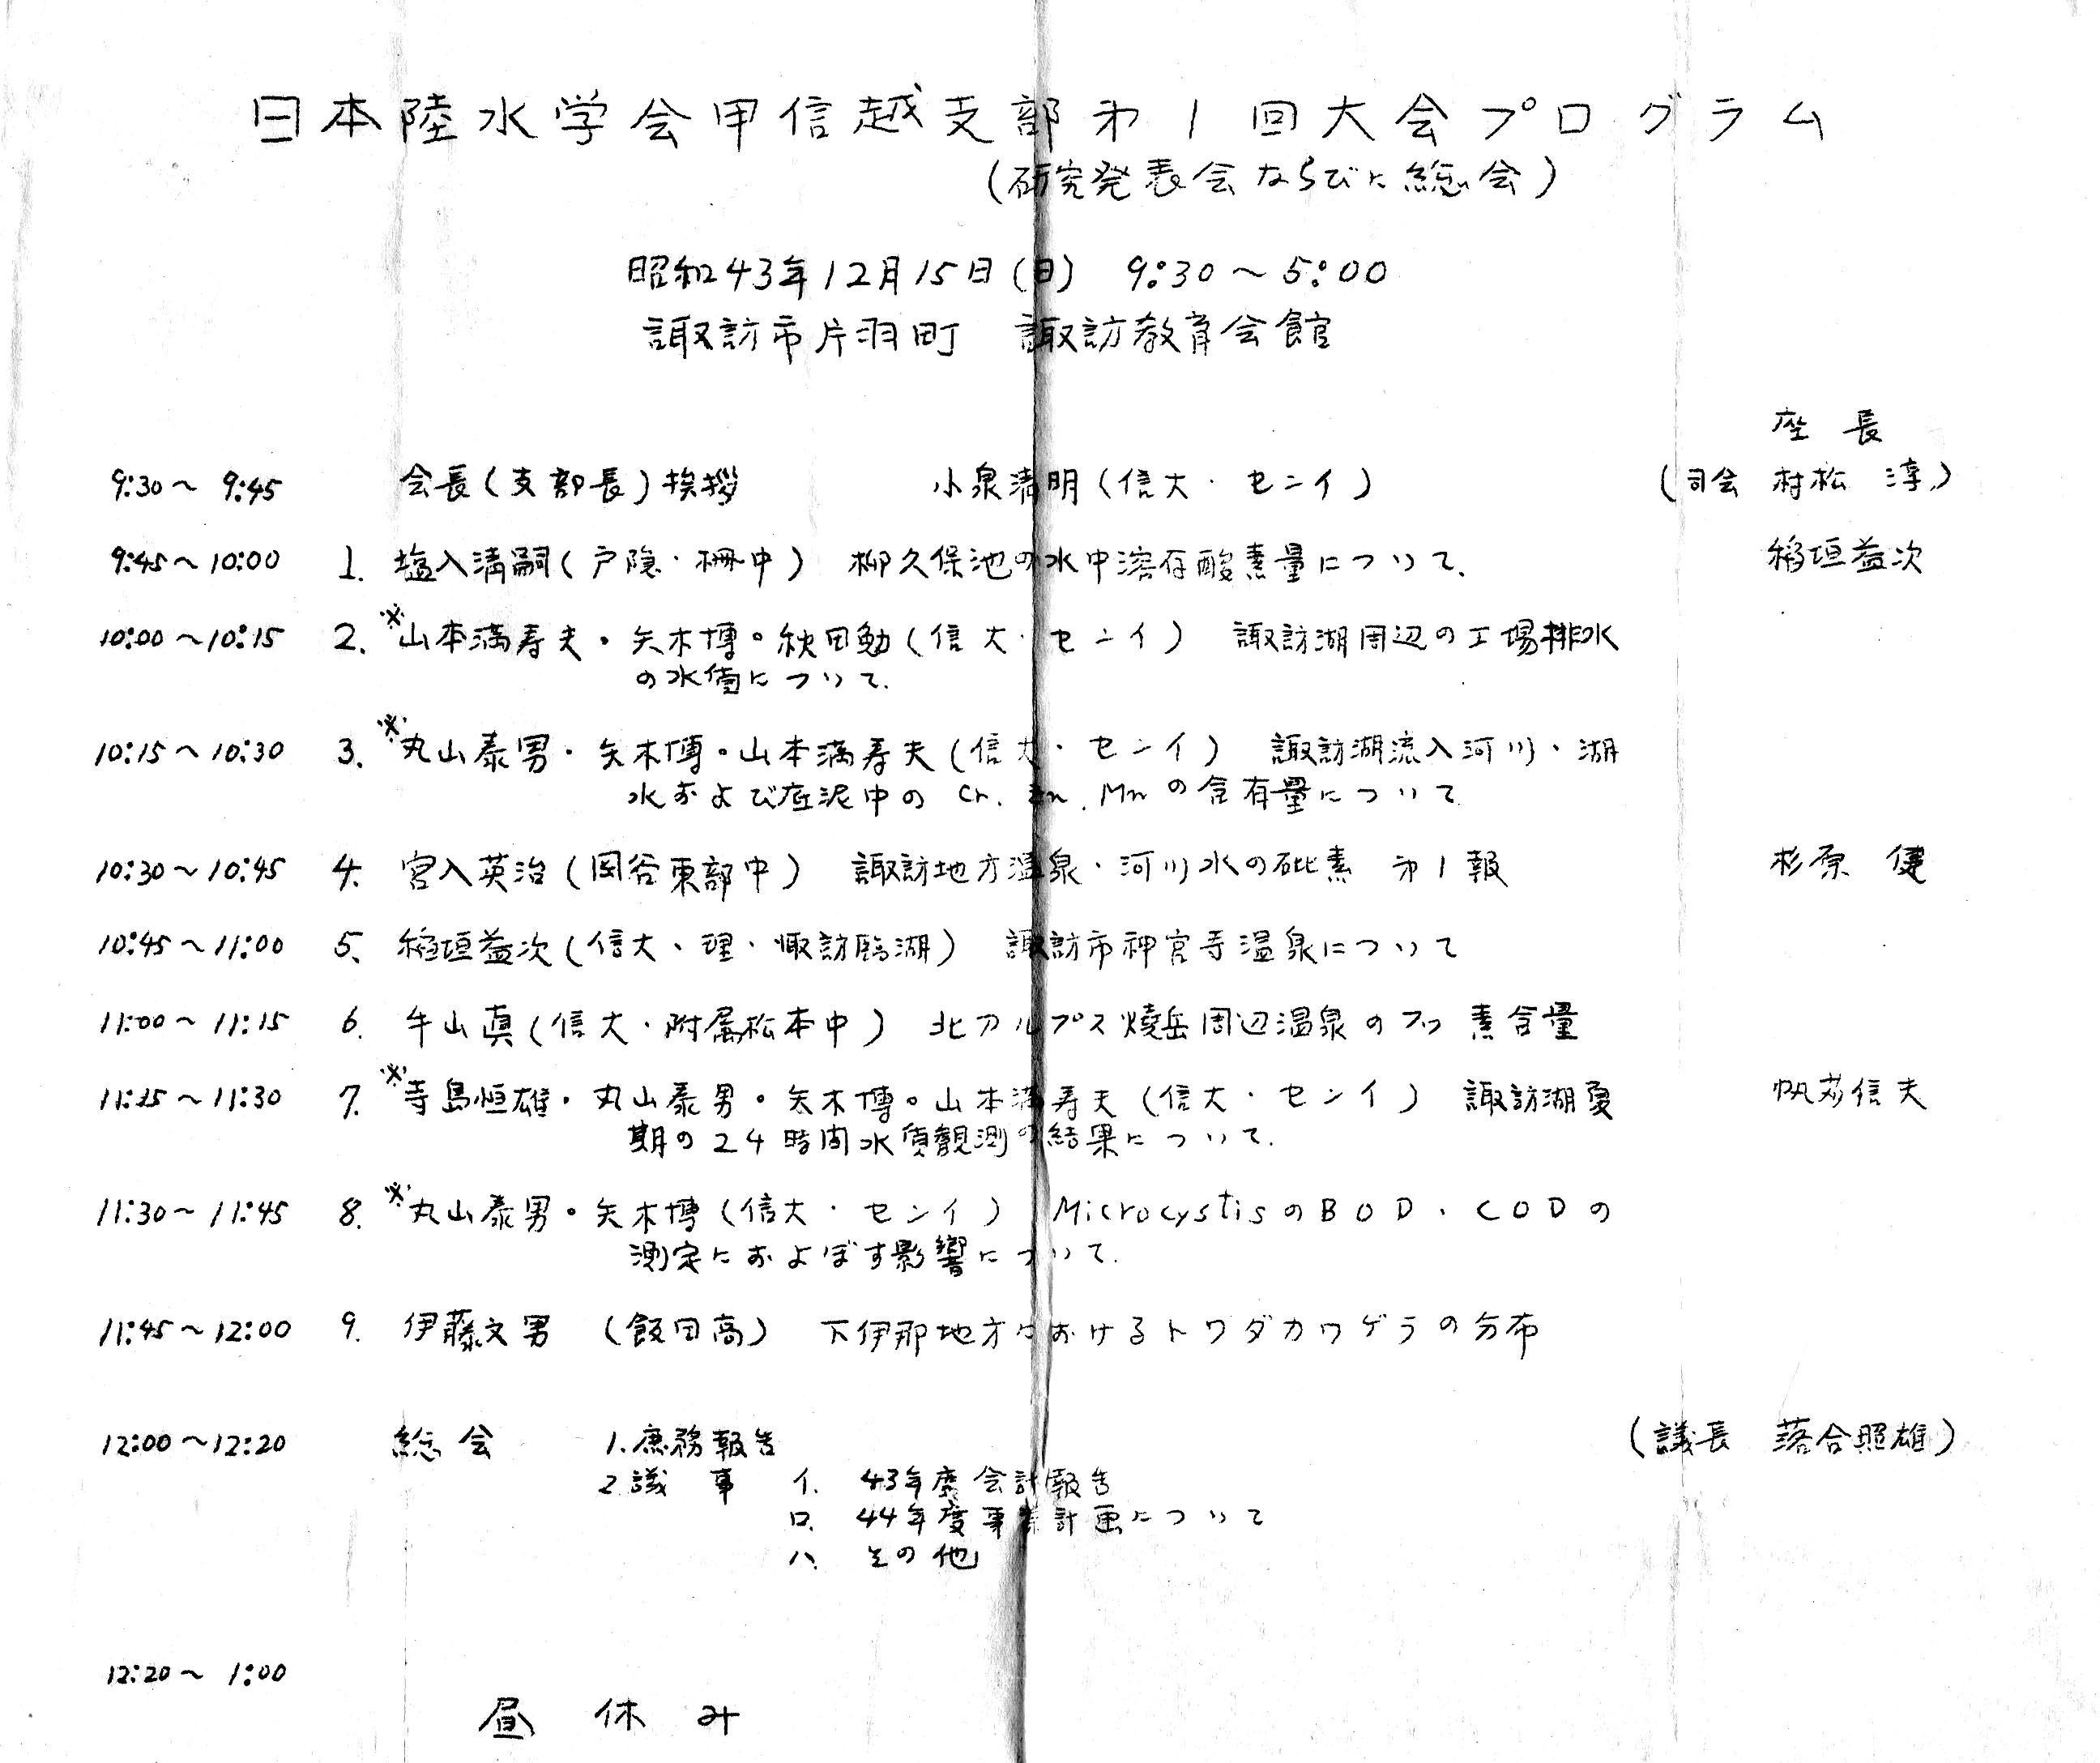 日本陸水学会甲信越支部第1回大会プログラム
(研究発表会ならびに総会)
昭和43年12月15日(日) 9:30～5:00
諏訪市片羽町 諏訪教育会館
座長
9:30～9:45 会長(支部長)挨拶 小泉清明(信大・センイ) (司会 村松 淳)
9:45～10:00 1. 塩入清嗣(戸隠・柵中) 柳久保池の水中溶存酸素量について. 稲垣益次
10:00～10:15 2. ※山本満寿夫・矢木博・秋田勉(信大・センイ) 諏訪湖周辺の工場排水
の水質について.
10:15～10:30 3. ※丸山泰男・矢木博・山本満寿夫(信大・センイ) 諏訪湖流入河川・湖
水および底泥中の Cr. Zn. Mn の含有量について
10:30～10:45 4. 宮入英治(岡谷東部中) 諏訪地方温泉・河川水の砒素 第1報 杉原 健
10:45～11:00 5. 稲垣益次(信大・理・諏訪臨湖) 諏訪市神宮寺温泉について
11:00～11:15 6. 牛山眞(信大・附属松本中) 北アルプス焼岳周辺温泉のフッ素含量
11:15～11:30 7. ※寺島恒雄・丸山泰男・矢木博・山本満寿夫(信大・センイ) 諏訪湖夏 帆苅信夫
期の24時間水質観測の結果について.
11:30～11:45 8. ※丸山泰男・矢木博(信大・センイ) MicrocystisのBOD・CODの
測定におよぼす影響について.
11:45～12:00 9. 伊藤文男 (飯田高) 下伊那地方におけるトワダカワゲラの分布
12:00～12:20 総会 1.庶務報告 (議長 落合照雄)
2.議事 イ. 43年度会計報告
ロ. 44年度事業計画について
ハ. その他
12:20～1:00
昼休み